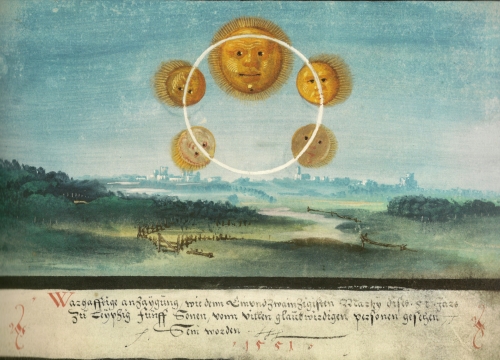 Warhafftige anzaygung wie dem Ainundzwaintzigisten Martzy diss 51 Jars
Zu Leyptzig funff Sonen, vonn villen glaubwirdigen personen gesehen
Sein worden
1551